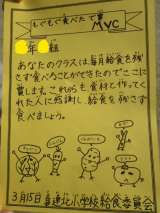 もぐもぐ食べたで賞
MVC
年 組
あなたのクラスは毎月給食を残
さず食べることができたのでここに
賞します。これからも食材と作ってく
れた人に感謝し給食を残さず
食べましょう。
3月15日 喜連北小学校給食委員会